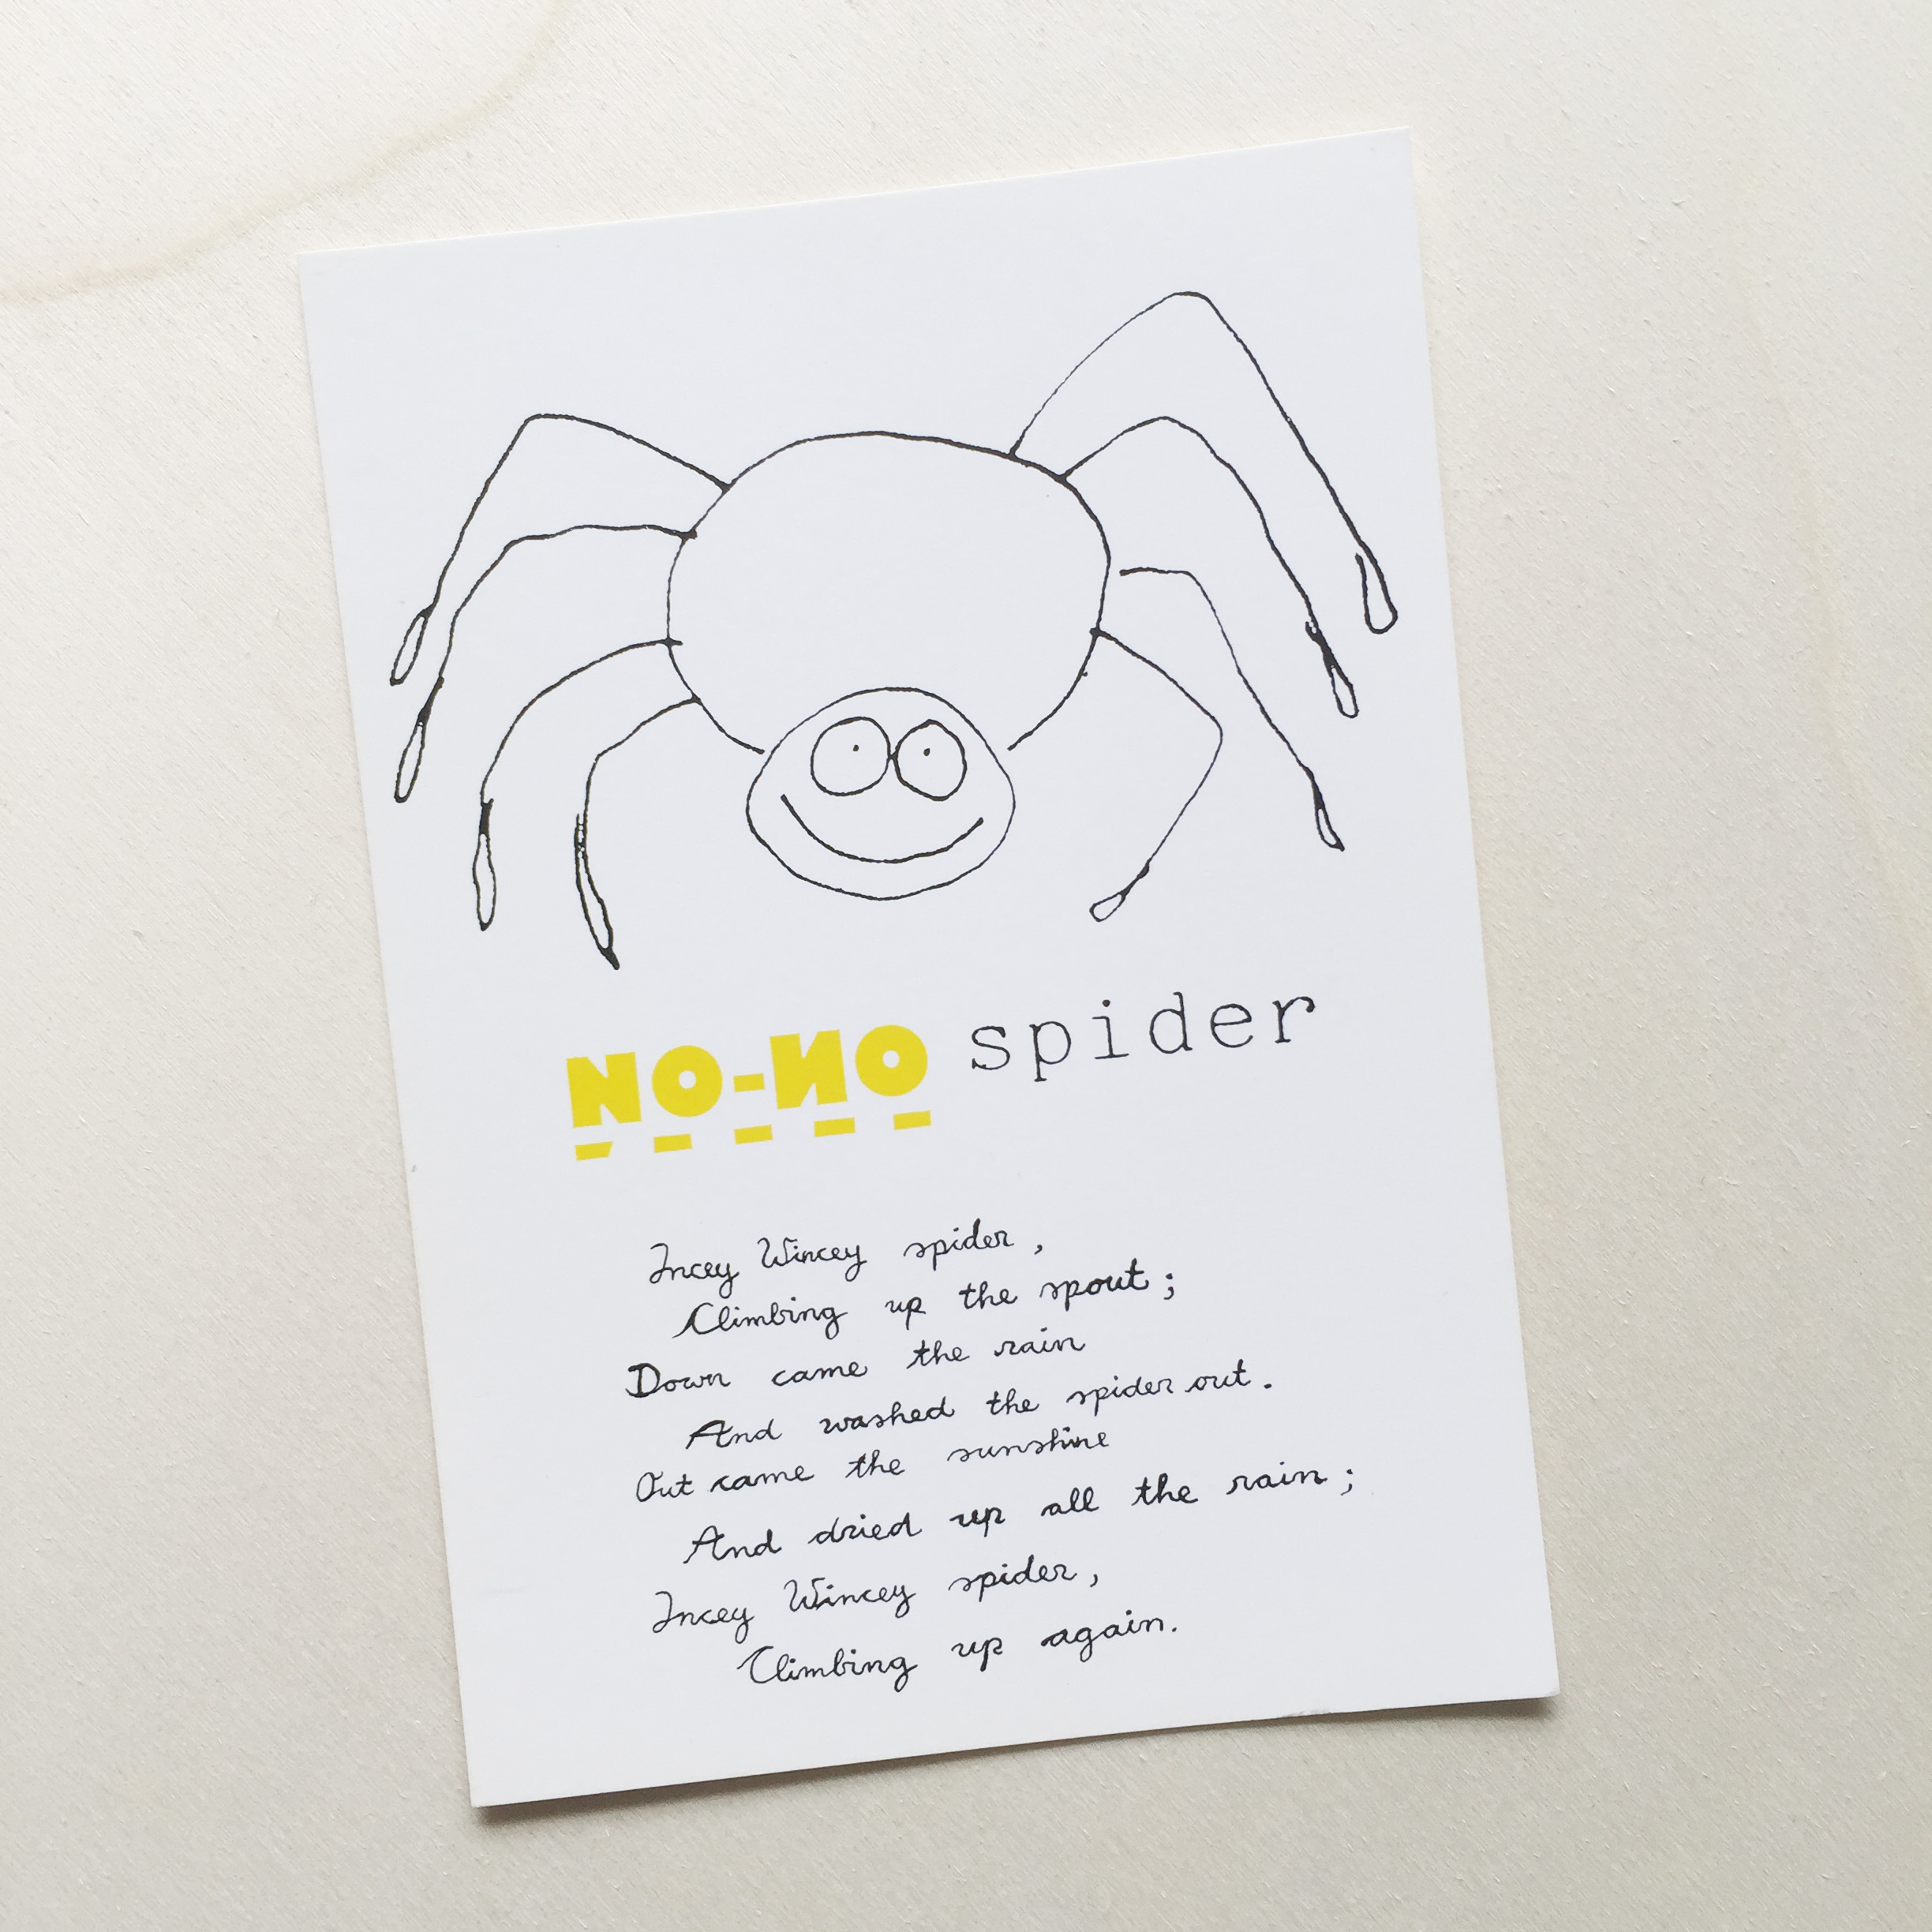 NO-NO spider
Incey Wincey spider,
Climbing up the spout;
Down came the rain
And washed the spider out.
Out came the sunshine
And dried up all the rain;
Incey Wincey spider,
Climbing up again.